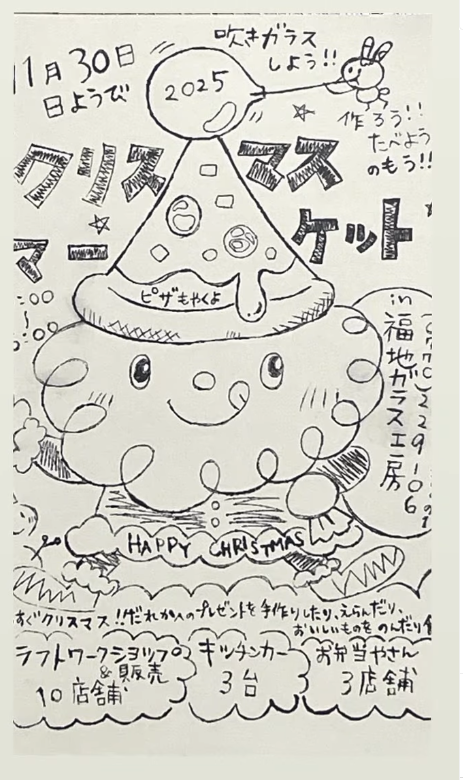 11月30日
日ようび
吹きガラス
しよう!!
2025
作ろう!!
たべよう
のもう!!
クリスマス
マーケット
:00
〜
:00
ピザもやくよ
in 福地ガラス工房
229106
HAPPY CHRISTMAS
すぐクリスマス!!だれかへのプレゼントを手作りしたり、えらんだり、
おいしいものをのんだり
ラフトワークショップ
&販売
10店舗
キッチンカー
3台
お弁当やさん
3店舗